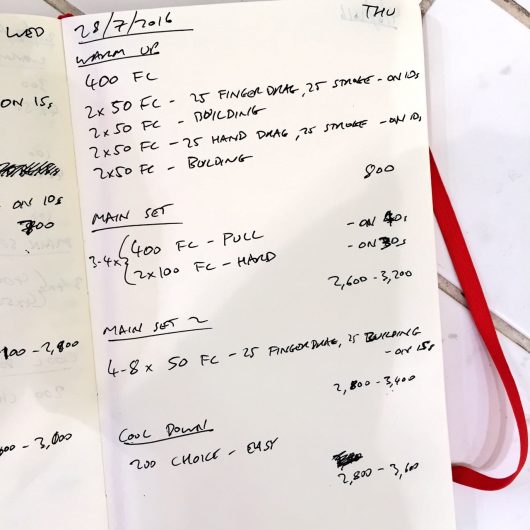 WED
ON 15s
ON 10s
800
- 2,800
- 3,000
28/7/2016 THU
WARM UP
400 FC
2x 50 FC - 25 FINGER DRAG, 25 STROKE - ON 10s
2x 50 FC - BUILDING
2x 50 FC - 25 HAND DRAG, 25 STROKE - ON 10s
2x50 FC - BUILDING
800
MAIN SET
3-4x { 400 FC - PULL - ON 40s
2x100 FC - HARD - ON 30s
2,600 - 3,200
MAIN SET 2
4-8 x 50 FC - 25 FINGERDRAG, 25 BUILDING
- ON 15s
2,800 - 3,400
COOL DOWN
200 CHOICE - EASY
2,800 - 3,600